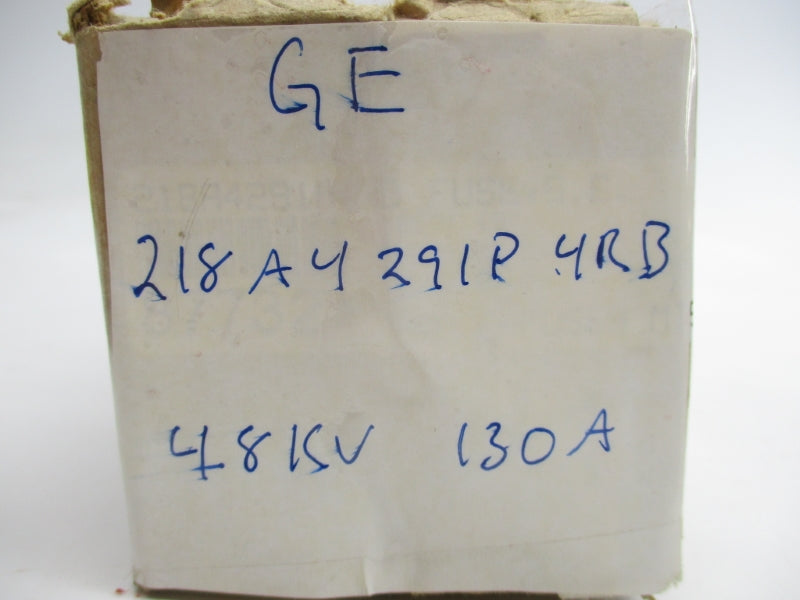 GE
218A4291P 4RB
48KV 130A